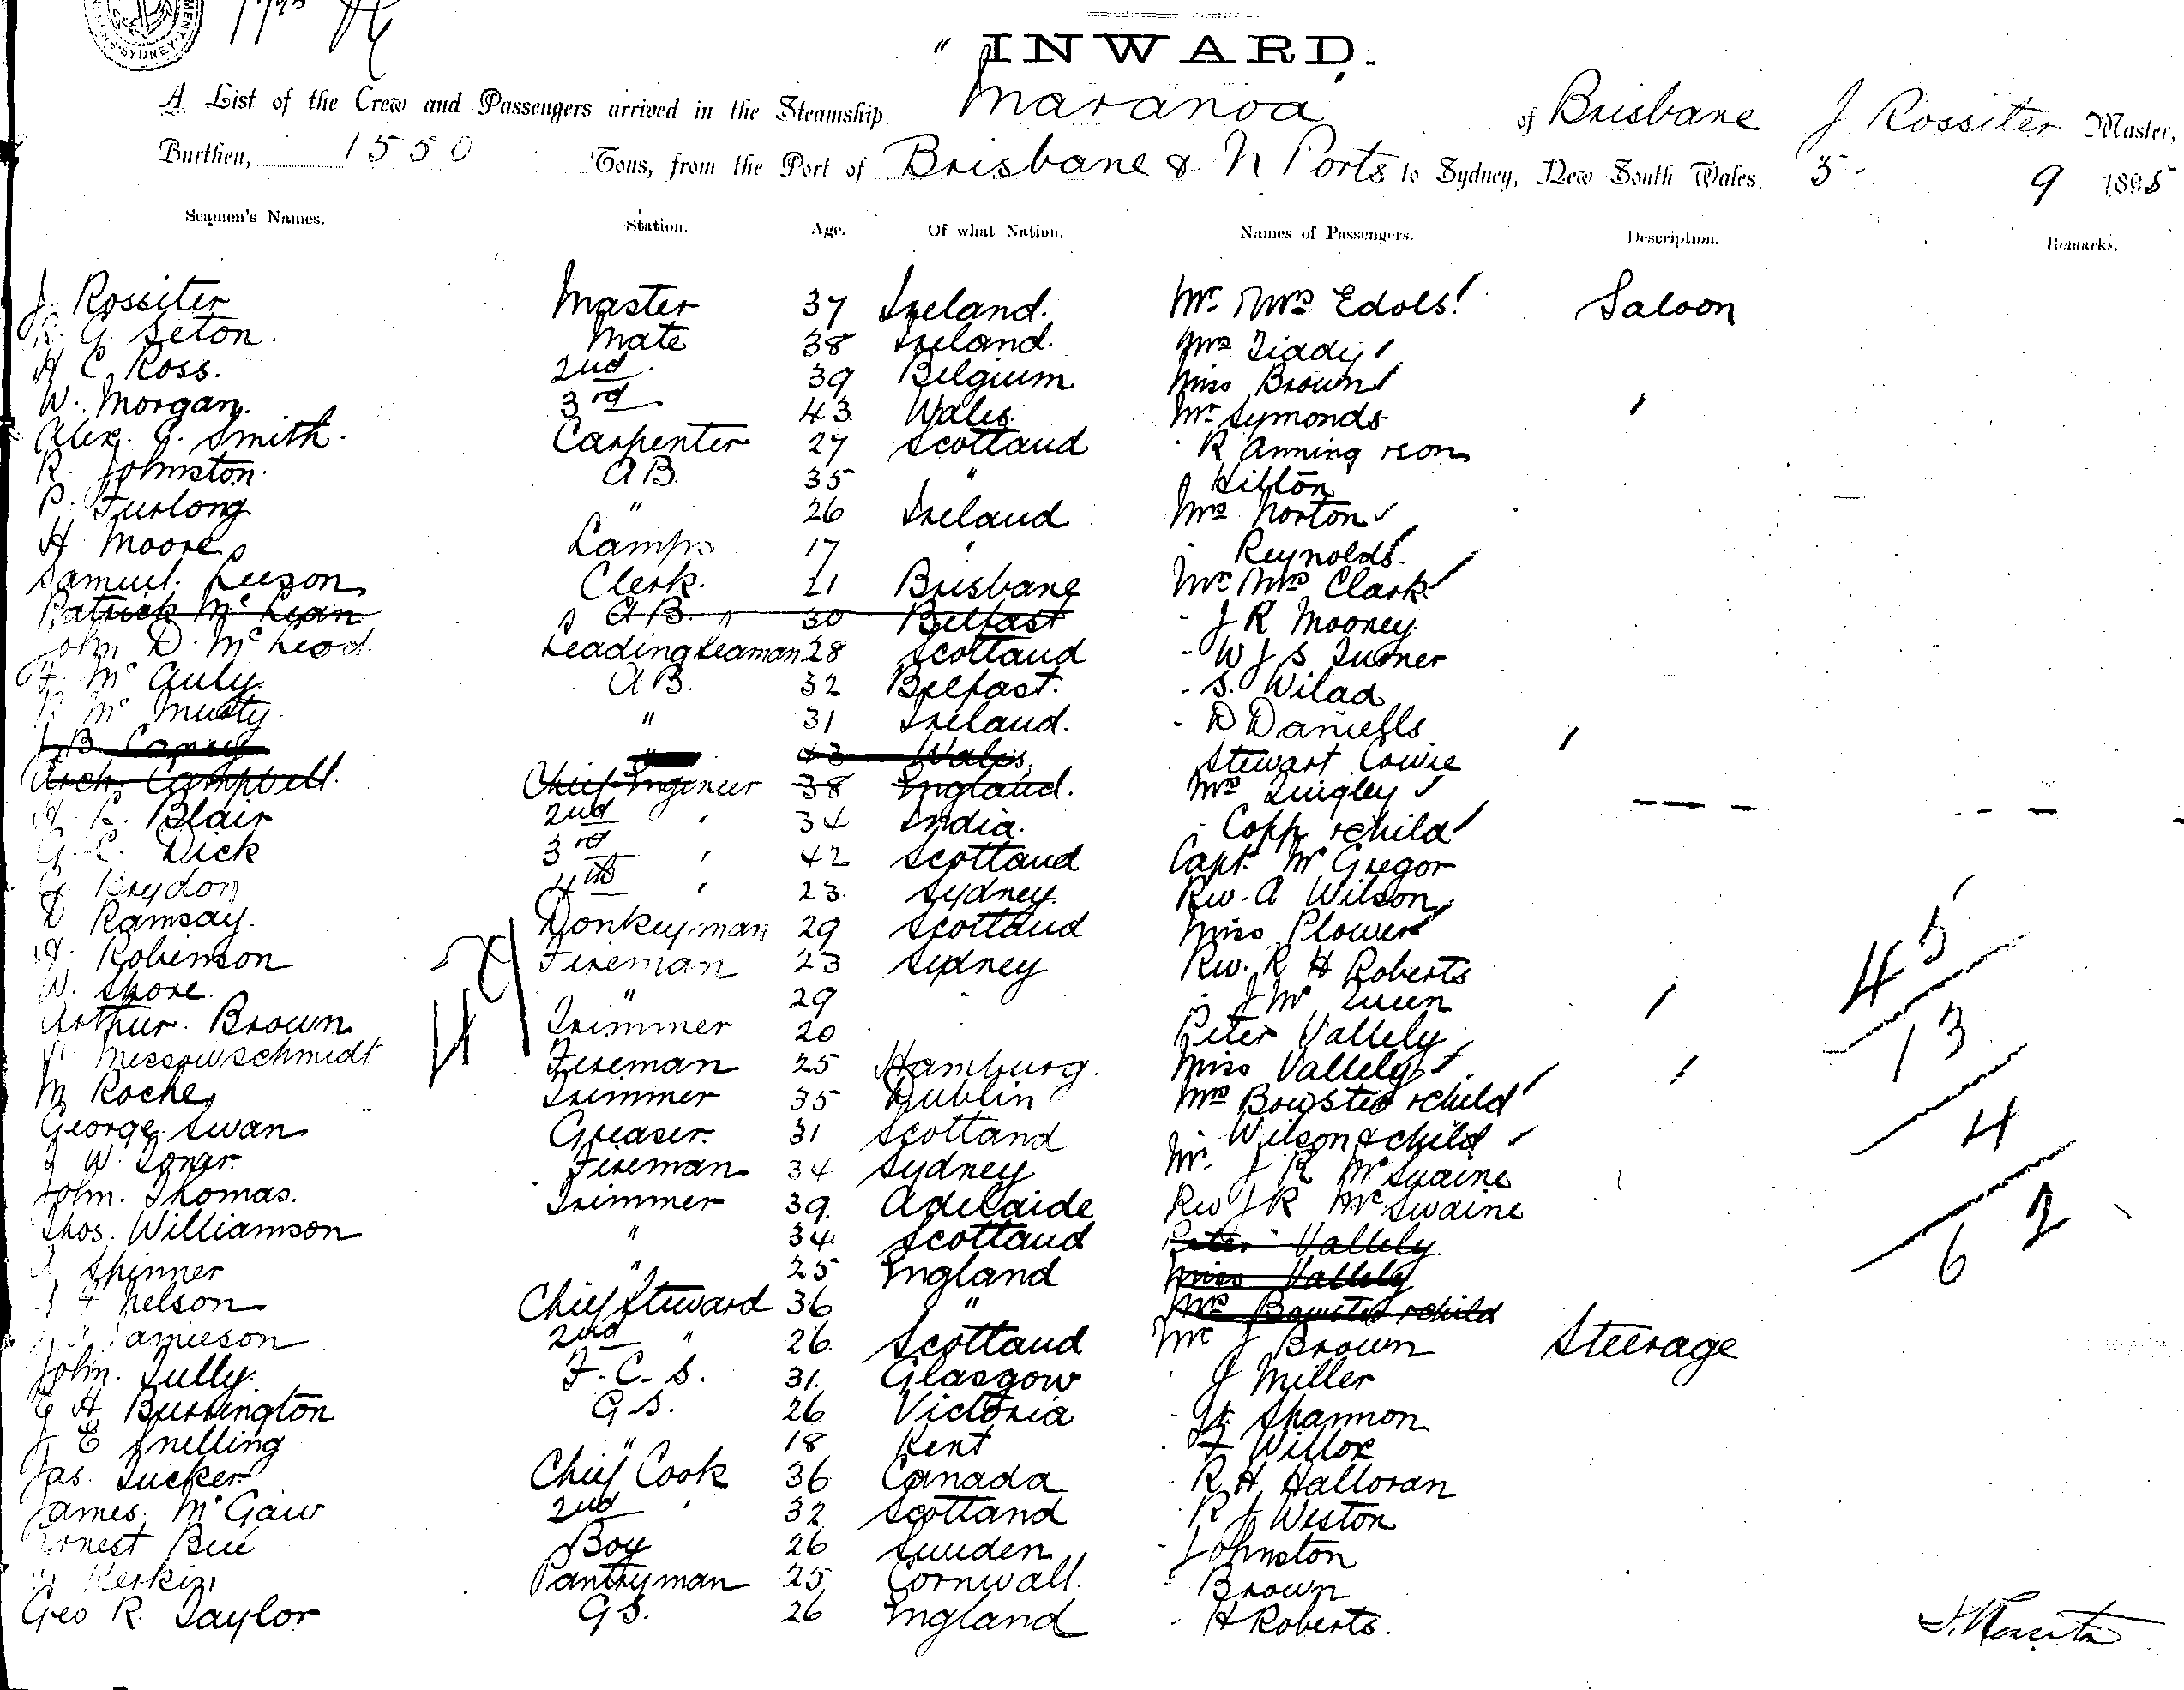 SYDNEY
" INWARD. "
A List of the Crew and Passengers arrived in the Steamship Maranoa of Brisbane J Rossiter Master,
Burthen, 1550 Tons, from the Port of Brisbane & N Ports to Sydney, New South Wales 5 - 9 1895
Seamen's Names. Station. Age. Of what Nation. Names of Passengers. Description. Remarks.
J. Rossiter Master 37 Ireland. Mr Mrs Edols Saloon
R. G. Seton. Mate 38 Ireland. Mrs Tiddy
H C Ross. 2nd 39 Belgium Miss Brown
W. Morgan. 3rd 43 Wales. Mr Symonds
Alex. G. Smith. Carpenter 27 Scotland R Anning & son
R. Johnston. AB. 35 " Hilton
P. Furlong " 26 Ireland Mrs Norton
H Moore Lamps 17 " Reynolds
Samuel Leeson Clerk. 21 Brisbane Mr Mrs Clark
Patrick McLean AB. 30 Belfast - J R Mooney
John D. McLeod. Leading Seaman 28 Scotland - W J S Turner
F. McAuly. AB. 32 Belfast. - S. Wilad
R McMurty. " 31 Ireland. - D Daniells
J B Caney " 43 Wales. Stewart Cowie
Arch. Campbell. Chief Engineer 38 England. Mrs Quigley
Blair 2nd " 34 India. - Copp & child
G. C. Dick 3rd " 42 Scotland Capt McGregor
G Breydon 4th " 23. Sydney. Rev. A Wilson
D Ramsay. Donkeyman 29 Scotland Miss Plower
H. Robinson Fireman 23 Sydney Rev. R H Roberts
W. Shore. " 29 J McQueen
Arthur. Brown Trimmer 20 Peter Vallely
Messowschmidt Fireman 25 Hamburg. Miss Vallely
M Roche Trimmer 35 Dublin Mrs Bowsted & child
George Swan Greaser. 31 Scotland Wilson & child
J W. Fireman 34 Sydney Mr. J R McSwaine
John. Thomas. Trimmer 39. Adelaide Rev J R McSwaine
Thos. Williamson " 34. Scotland Peter Vallely.
Skinner " 25 England Miss Vallely
J F Nelson Chief Steward 36 " Mrs Bowsted & child
Jamieson 2nd " 26. Scotland Mr J Brown Steerage
John. Tully. F. C. S. 31. Glasgow J Miller
G H Burbington G S. 26 Victoria - Shannon
J E Snelling " 18 Kent F Willox
Jas. Tucker Chief Cook 36 Canada - R H Halloran
James McGaw 2nd " 32 Scotland R J Weston
Ernest Bue Boy 26 Sweden - Johnston
Kerkin Pantryman 25 Cornwall. - Brown
Geo R. Taylor G S. 26 England - H Roberts.
45
13
4
62
J. Rossiter